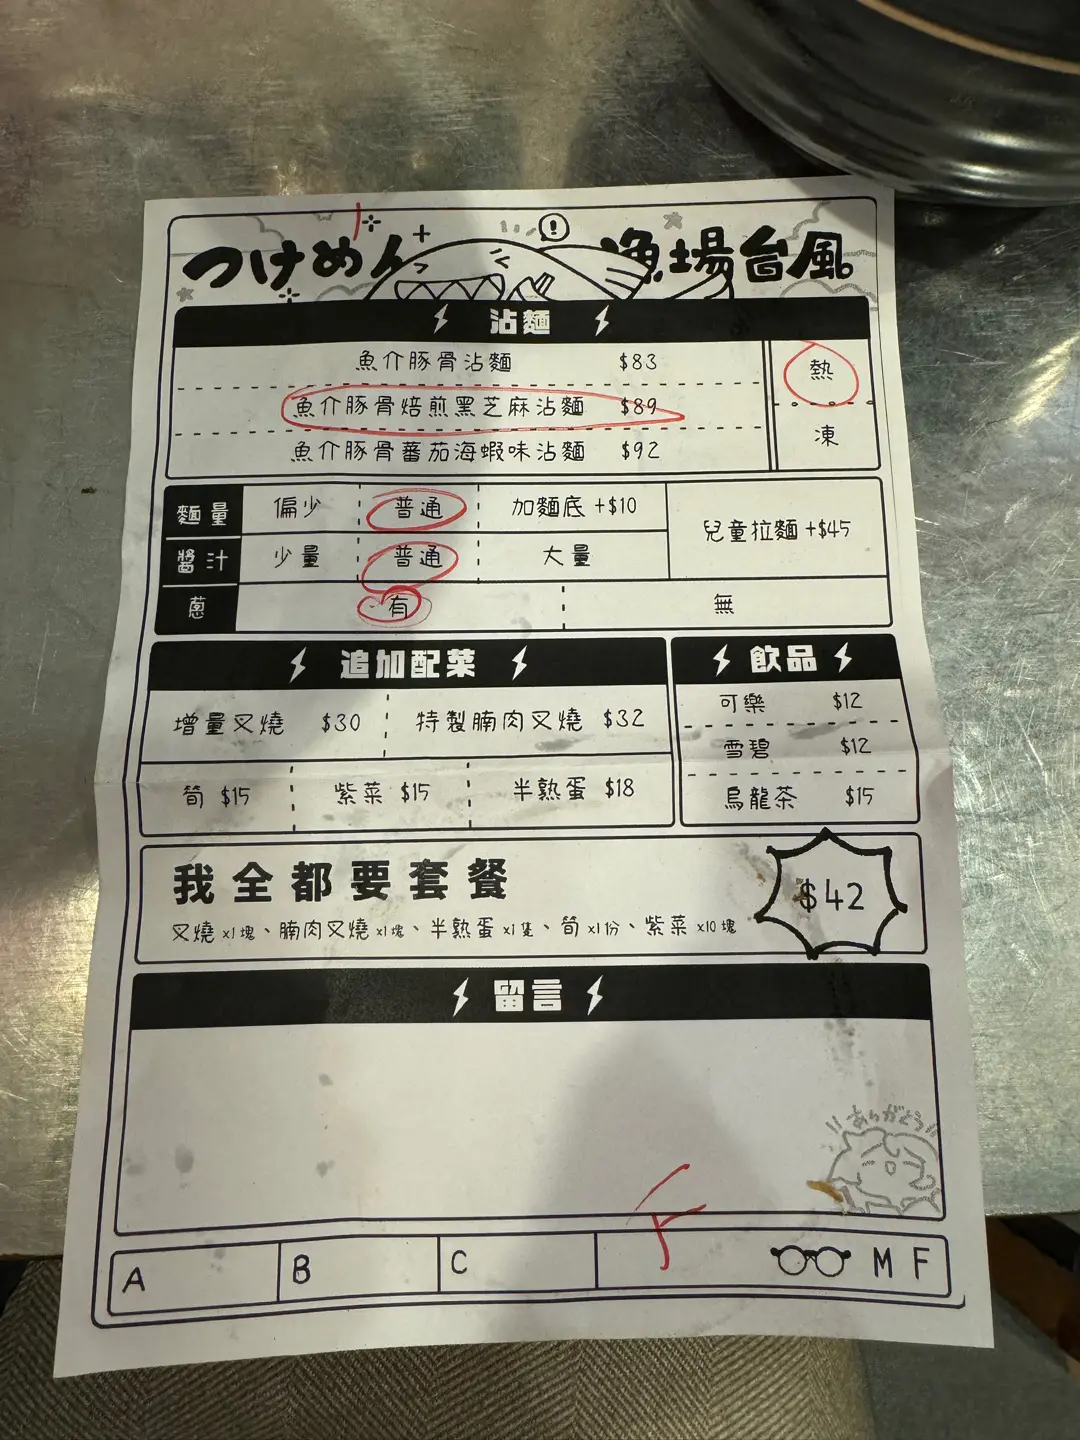 つけめん 漁場台風
沾麵
魚介豚骨沾麵 $83
魚介豚骨焙煎黑芝麻沾麵 $89
魚介豚骨蕃茄海蝦味沾麵 $92
熱
凍
麵量 偏少 普通 加麵底+$10
兒童拉麵+$45
醬汁 少量 普通 大量
蔥 有 無
追加配菜
增量叉燒 $30 特製腩肉叉燒 $32
筍 $15 紫菜 $15 半熟蛋 $18
飲品
可樂 $12
雪碧 $12
烏龍茶 $15
我全都要套餐
叉燒x1塊、腩肉叉燒x1塊、半熟蛋x1隻、筍x1份、紫菜x10塊
$42
留言
!!ありがとう!!
A B C M F